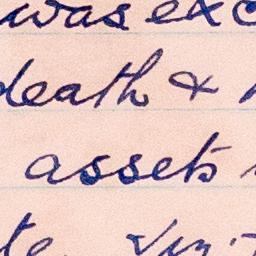 was exc
death &
assets
te.